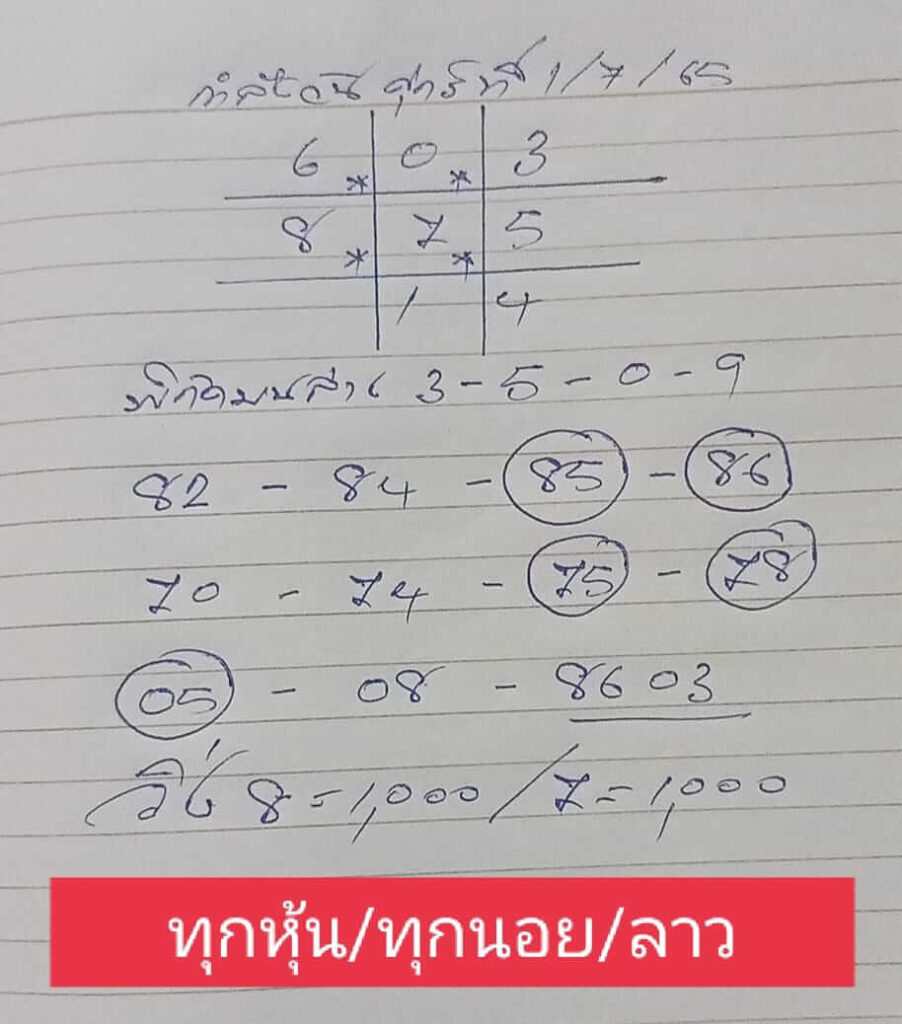 กำลังวัน ศุกร์ที่ 1/7/65
6 * 0 * 3
8 * 7 * 5
1 4
3-5-0-9
82 - 84 - 85 - 86
70 - 74 - 75 - 78
05 - 08 - 8603
วิ่ง 8=1,000/7=1,000
ทุกหุ้น/ทุกนอย/ลาว